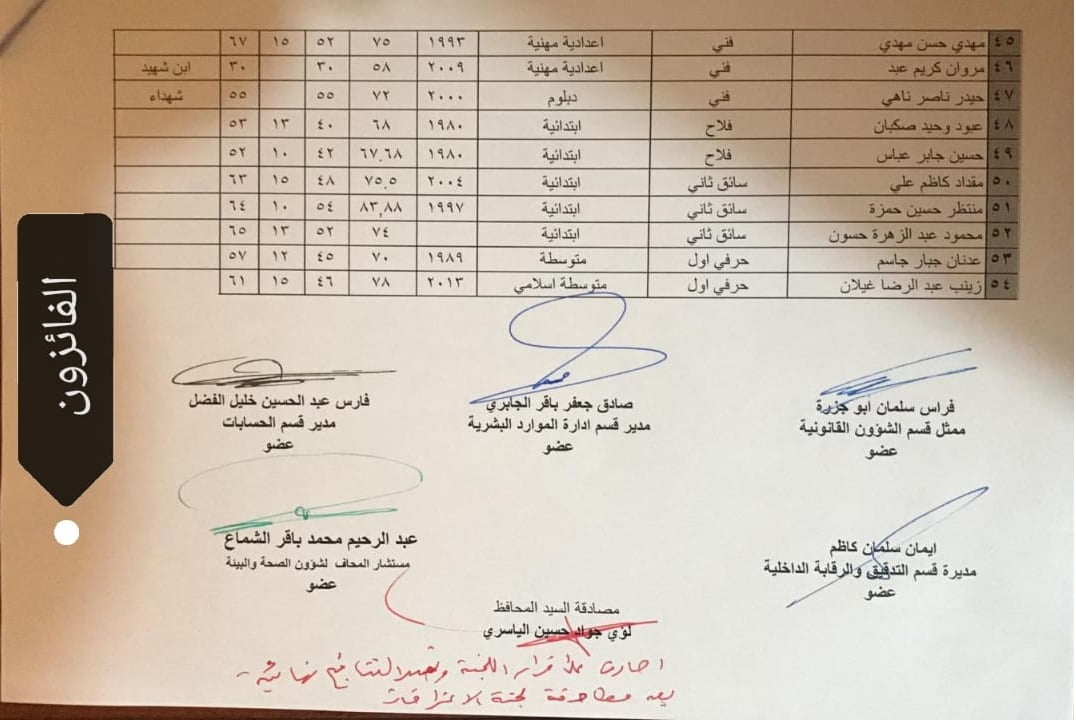 ٤٥ مهدي حسن مهدي فني اعدادية مهنية ١٩٩٣ ٧٥ ٥٢ ١٥ ٦٧
٤٦ مروان كريم عبد فني اعدادية مهنية ٢٠٠٩ ٥٨ ٣٠ ٣٠ ابن شهيد
٤٧ حيدر ناصر ناهي فني دبلوم ٢٠٠٠ ٧٢ ٥٥ ٥٥ شهداء
٤٨ عبود وحيد صكبان فلاح ابتدائية ١٩٨٠ ٦٨ ٤٠ ١٣ ٥٣
٤٩ حسين جابر عباس فلاح ابتدائية ١٩٨٠ ٦٧.٦٨ ٤٢ ١٠ ٥٢
٥٠ مقداد كاظم علي سائق ثاني ابتدائية ٢٠٠٤ ٧٥.٥ ٤٨ ١٥ ٦٣
٥١ منتظر حسين حمزة سائق ثاني ابتدائية ١٩٩٧ ٨٣,٨٨ ٥٤ ١٠ ٦٤
٥٢ محمود عبد الزهرة حسون سائق ثاني ابتدائية ٧٤ ٥٢ ١٣ ٦٥
٥٣ عدنان جبار جاسم حرفي اول متوسطة ١٩٨٩ ٧٠ ٤٥ ١٢ ٥٧
٥٤ زينب عبد الرضا غيلان حرفي اول متوسطة اسلامي ٢٠١٣ ٧٨ ٤٦ ١٥ ٦١
الفائزون
فراس سلمان ابو جزرة
ممثل قسم الشؤون القانونية
عضو
صادق جعفر باقر الجابري
مدير قسم ادارة الموارد البشرية
عضو
فارس عبد الحسين خليل الفضل
مدير قسم الحسابات
عضو
ايمان سلمان كاظم
مديرة قسم التدقيق والرقابة الداخلية
عضو
عبد الرحيم محمد باقر الشماع
مستشار المحاف لشؤون الصحة والبيئة
عضو
مصادقة السيد المحافظ
لؤي جواد حسين الياسري
قرار اللجنة وتعد النتائج نهائية
بعد مصادقة لجنة الاعتراضات